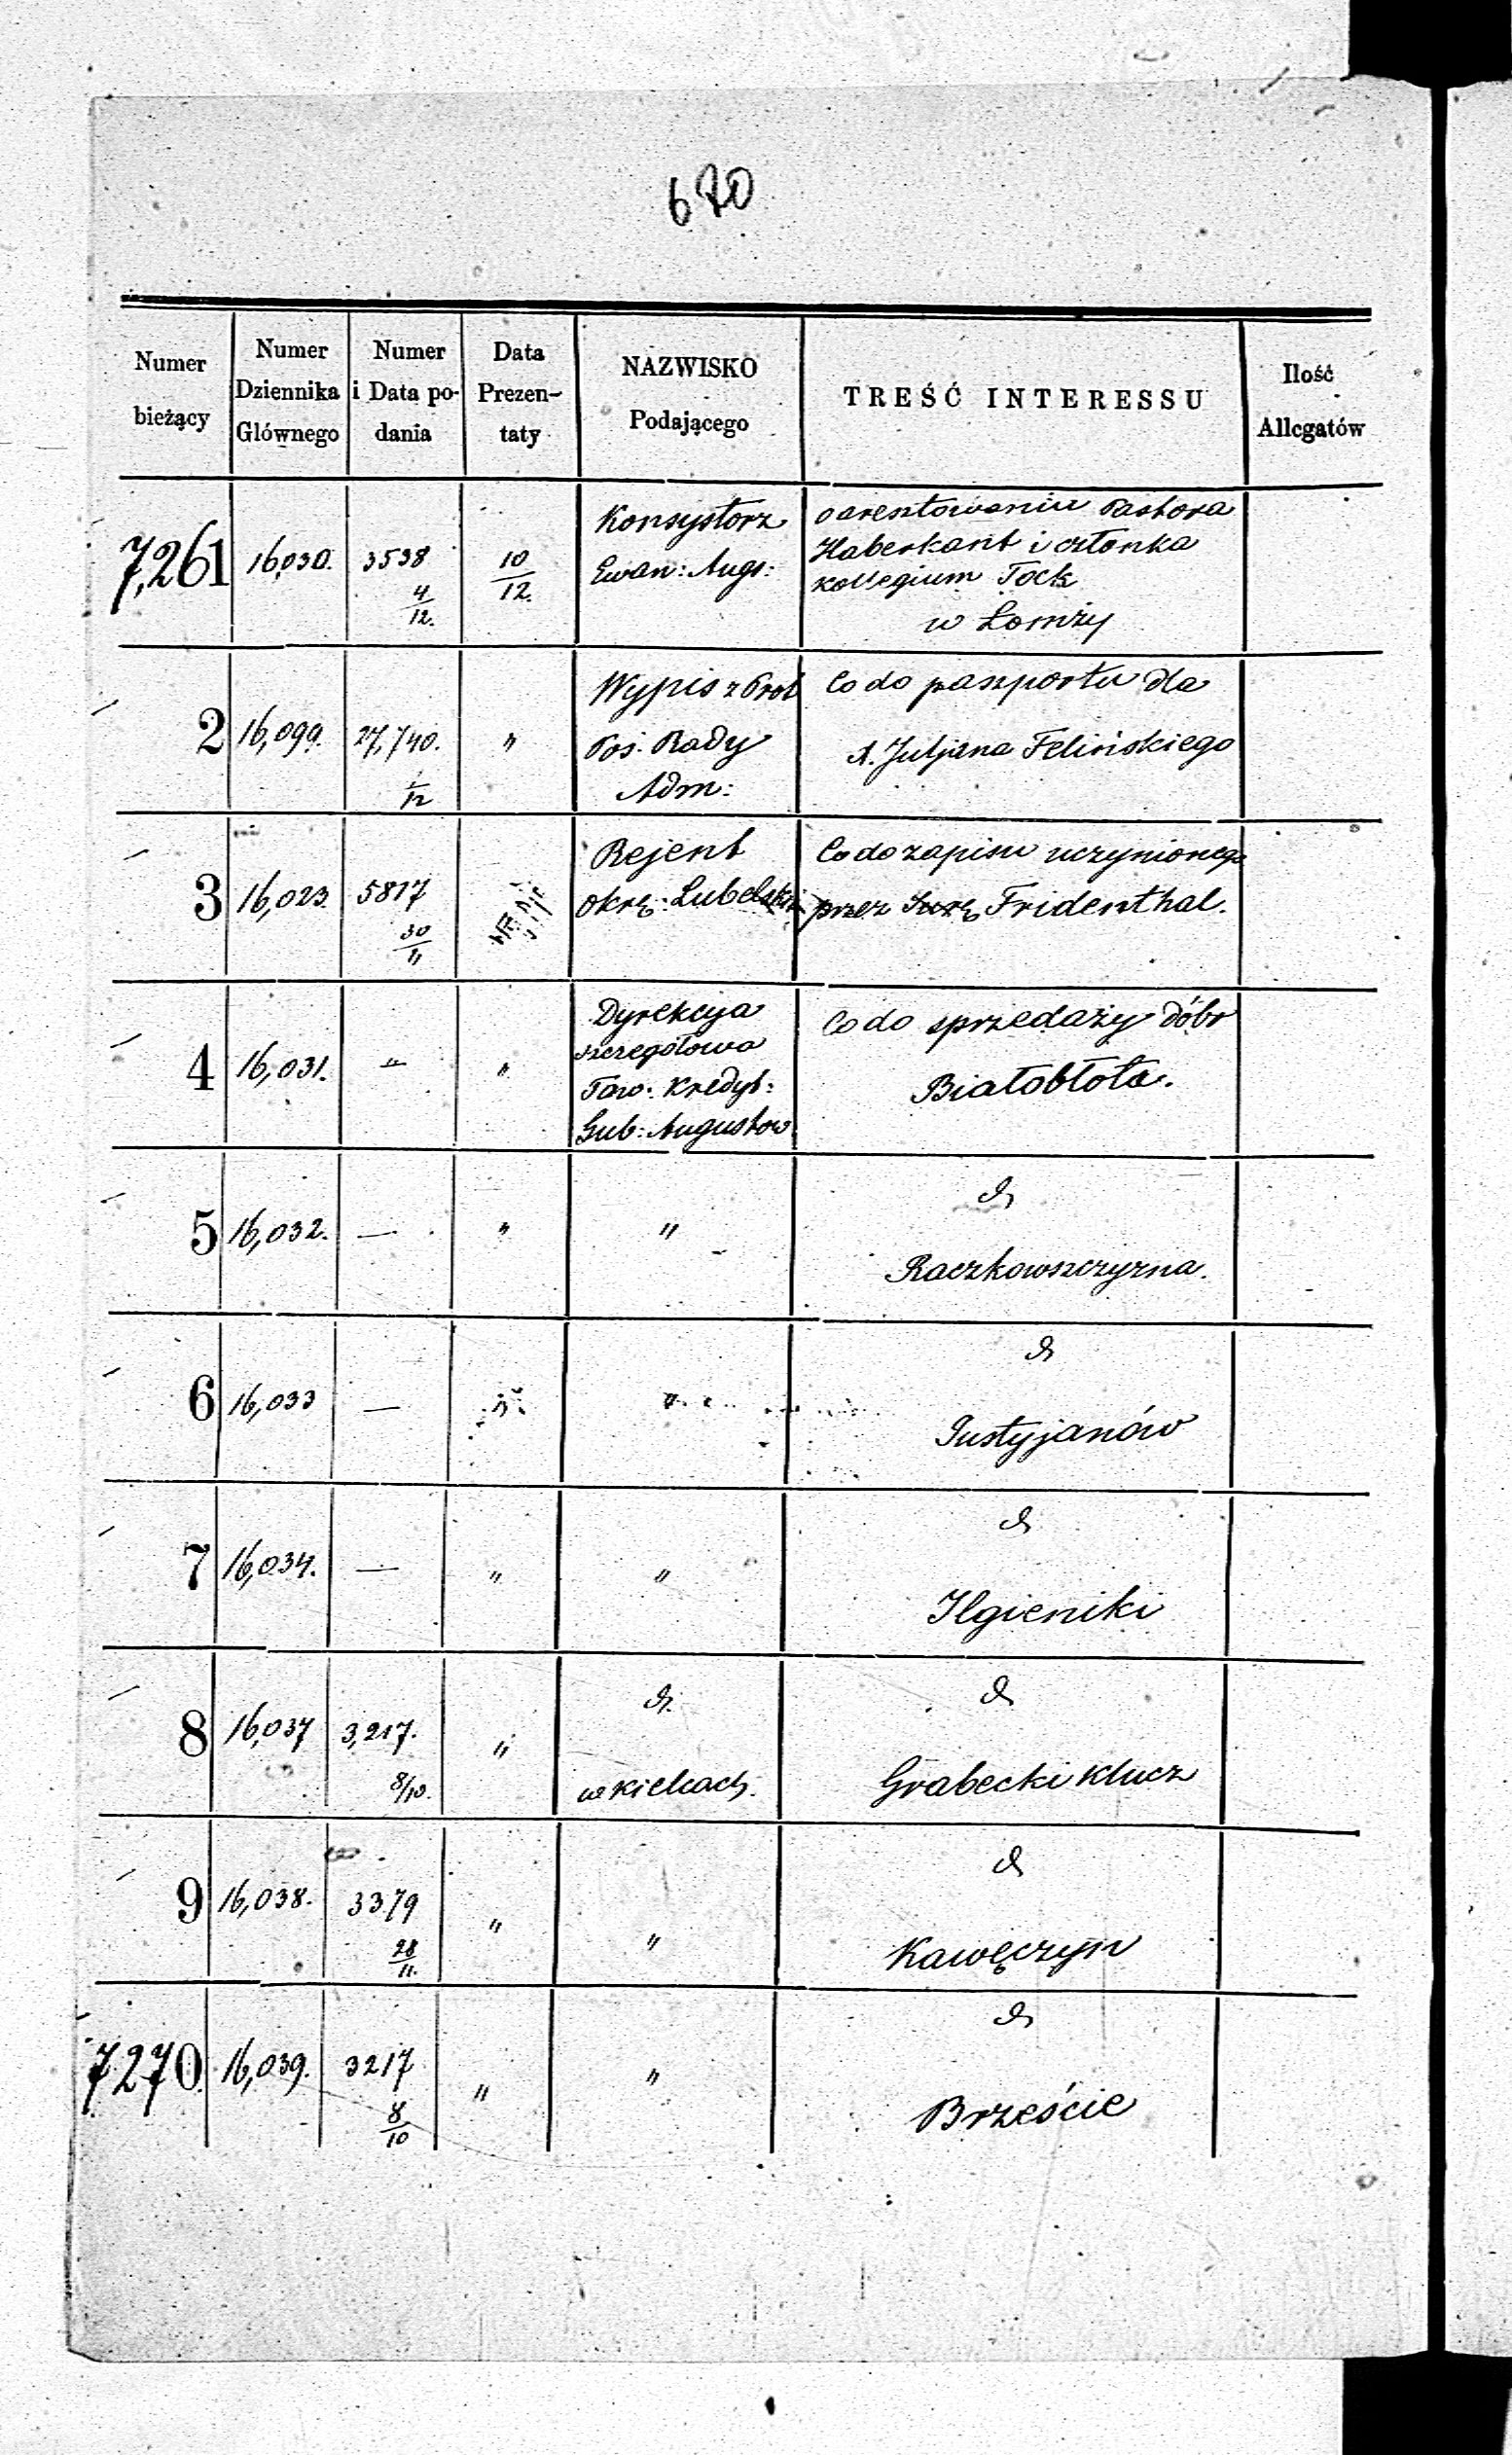 670
Numer bieżący | Numer Dziennika Głównego | Numer i Data podania | Data Prezentaty | NAZWISKO Podającego | TREŚĆ INTERESSU | Ilość Allegatów
7,261 | 16,030. | 3538 4/12. | 10/12. | Konsystorz Ewan: Augs: | o aresztowaniu Pastora Haberkant i członka kollegium Tock w Łomży
2 | 16,099. | 27,740. 1/12 | " | Wypis z Prot Pos. Rady Adm: | Co do paszportu dla A. Juljana Felińskiego
3 | 16,023. | 5817 30/11 | Rejent Okrę: Lubelski | Co do zapisu uczynionego przez Surę Fridenthal.
4 | 16,031. | " | " | Dyrekcya szczegółowa Tow: Kredyt: Gub: Augustow | Co do sprzedaży dóbr Białobłota.
5 | 16,032. | — | " | " | d Raczkowszczyzna.
6 | 16,033 | — | " | " | d Justyjanów
7 | 16,034. | — | " | " | d Ilgieniki
8 | 16,037 | 3,217. 8/10. | " | d. w Kielcach. | d Grabecki klucz
9 | 16,038. | 3379 28/11. | " | " | d Kawęczyn
7270. | 16,039. | 3217 8/10 | " | " | d Brzeście